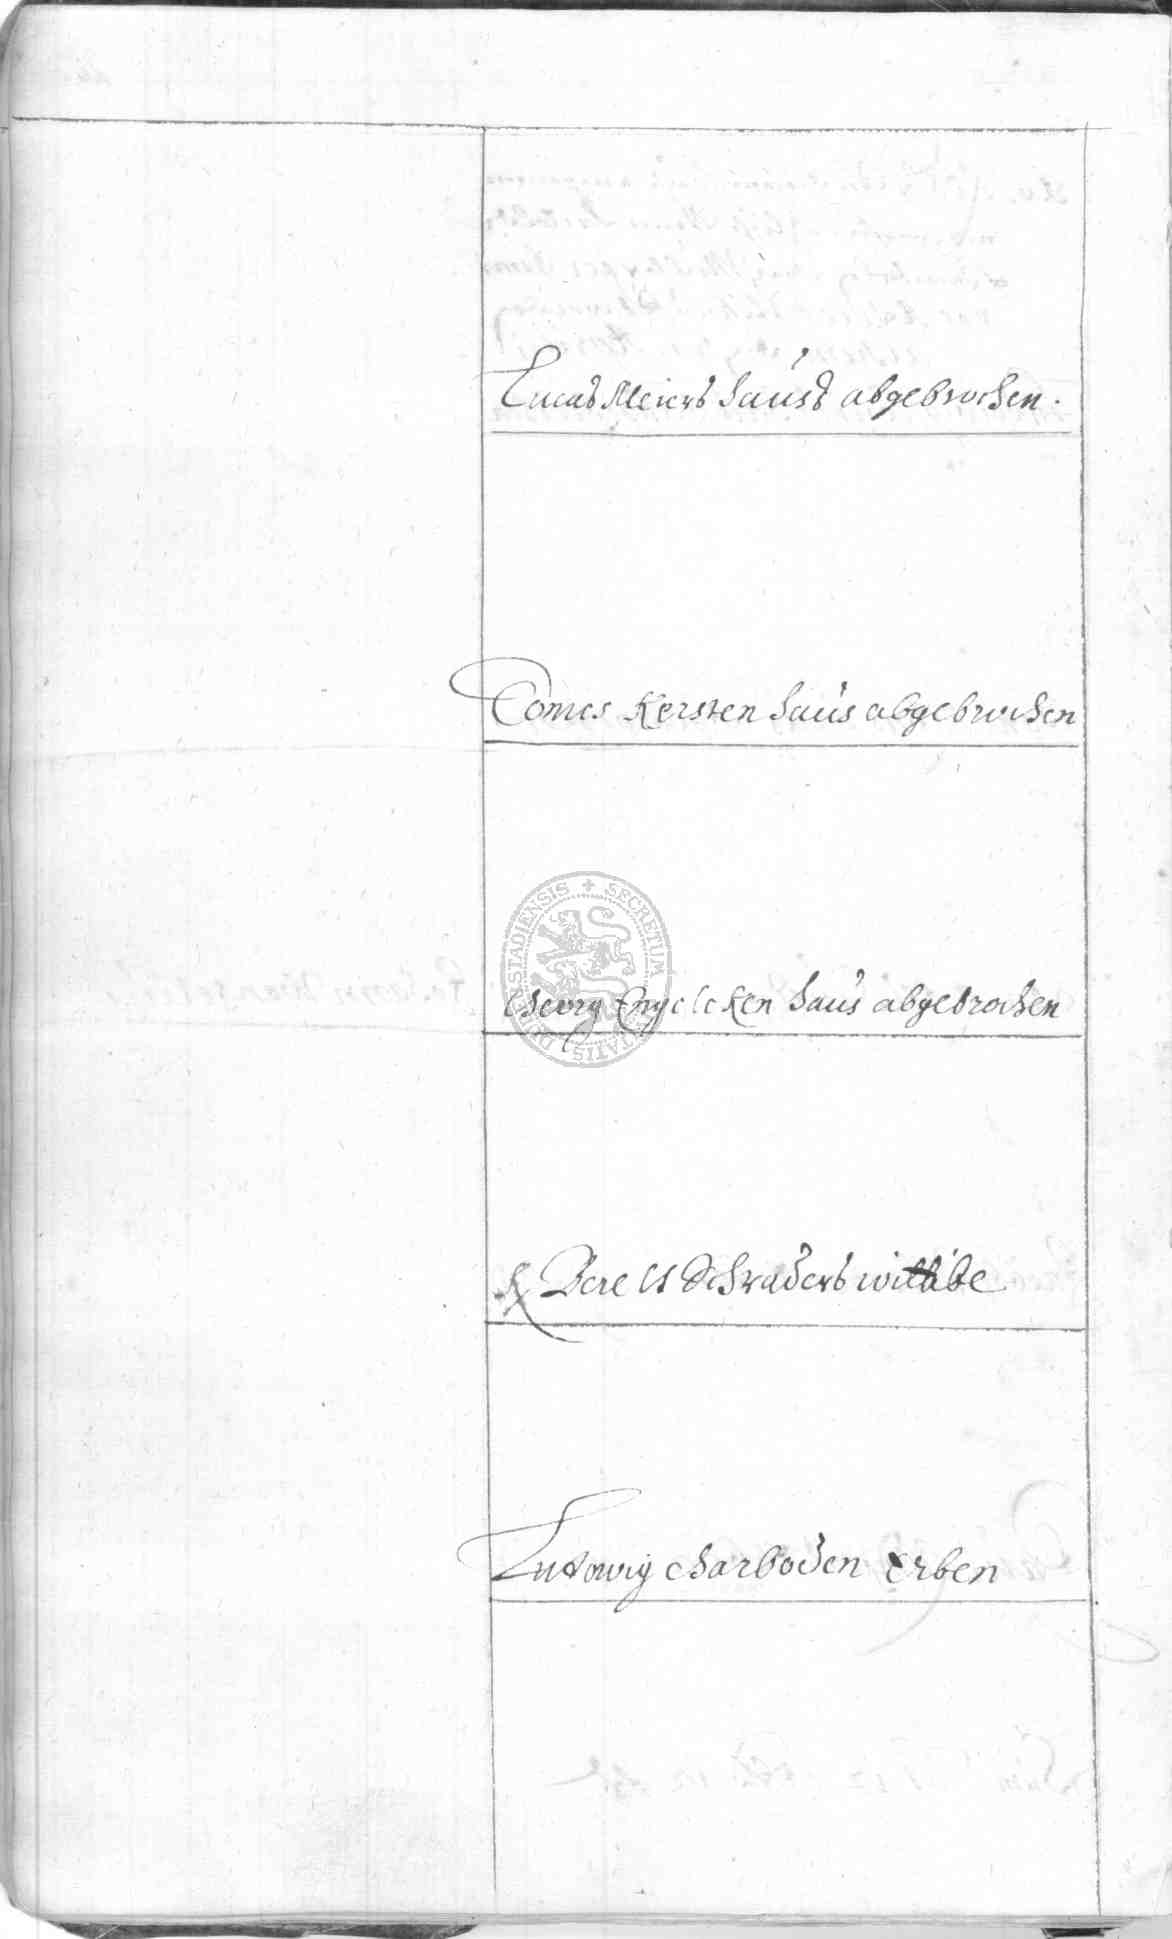 Lucas Meiers hauss abgebrochen.
Tomes Kersten haus abgebrochen
SECRETUM
Cheorg Engelcken haus abgebrochen
Berelt Schraders wittibe
Ludowig charboden Erben